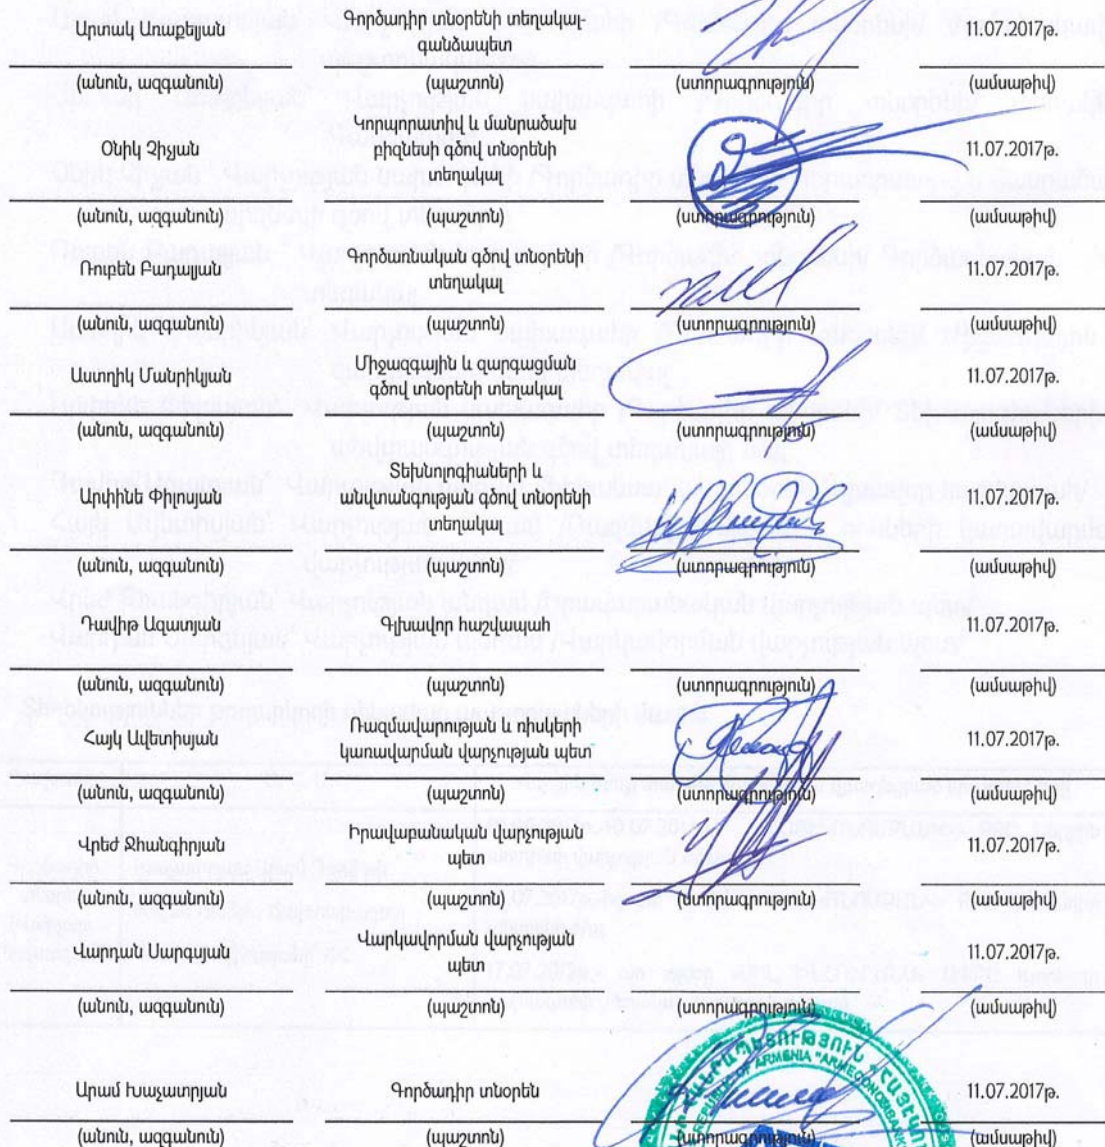 Արտակ Առաքելյան
Գործադիր տնօրենի տեղակալ-
գանձապետ
11.07.2017թ.
(անուն, ազգանուն) (պաշտոն) (ստորագրություն) (ամսաթիվ)
Օնիկ Չիչյան
Կորպորատիվ և մանրածախ
բիզնեսի գծով տնօրենի
տեղակալ
11.07.2017թ.
(անուն, ազգանուն) (պաշտոն) (ստորագրություն) (ամսաթիվ)
Ռուբեն Բադալյան
Գործառնական գծով տնօրենի
տեղակալ
11.07.2017թ.
(անուն, ազգանուն) (պաշտոն) (ստորագրություն) (ամսաթիվ)
Աստղիկ Մանրիկյան
Միջազգային և զարգացման
գծով տնօրենի տեղակալ
11.07.2017թ.
(անուն, ազգանուն) (պաշտոն) (ստորագրություն) (ամսաթիվ)
Արփինե Փիլոսյան
Տեխնոլոգիաների և
անվտանգության գծով տնօրենի
տեղակալ
11.07.2017թ.
(անուն, ազգանուն) (պաշտոն) (ստորագրություն) (ամսաթիվ)
Դավիթ Ազատյան
Գլխավոր հաշվապահ
11.07.2017թ.
(անուն, ազգանուն) (պաշտոն) (ստորագրություն) (ամսաթիվ)
Հայկ Ավետիսյան
Ռազմավարության և ռիսկերի
կառավարման վարչության պետ
11.07.2017թ.
(անուն, ազգանուն) (պաշտոն) (ստորագրություն) (ամսաթիվ)
Վրեժ Ջհանգիրյան
Իրավաբանական վարչության
պետ
11.07.2017թ.
(անուն, ազգանուն) (պաշտոն) (ստորագրություն) (ամսաթիվ)
Վարդան Սարգսյան
Վարկավորման վարչության
պետ
11.07.2017թ.
(անուն, ազգանուն) (պաշտոն) (ստորագրություն) (ամսաթիվ)
Արամ Խաչատրյան
Գործադիր տնօրեն
11.07.2017թ.
(անուն, ազգանուն) (պաշտոն) (ստորագրություն) (ամսաթիվ)
OF ARMENIA "ARMECONOMBANK